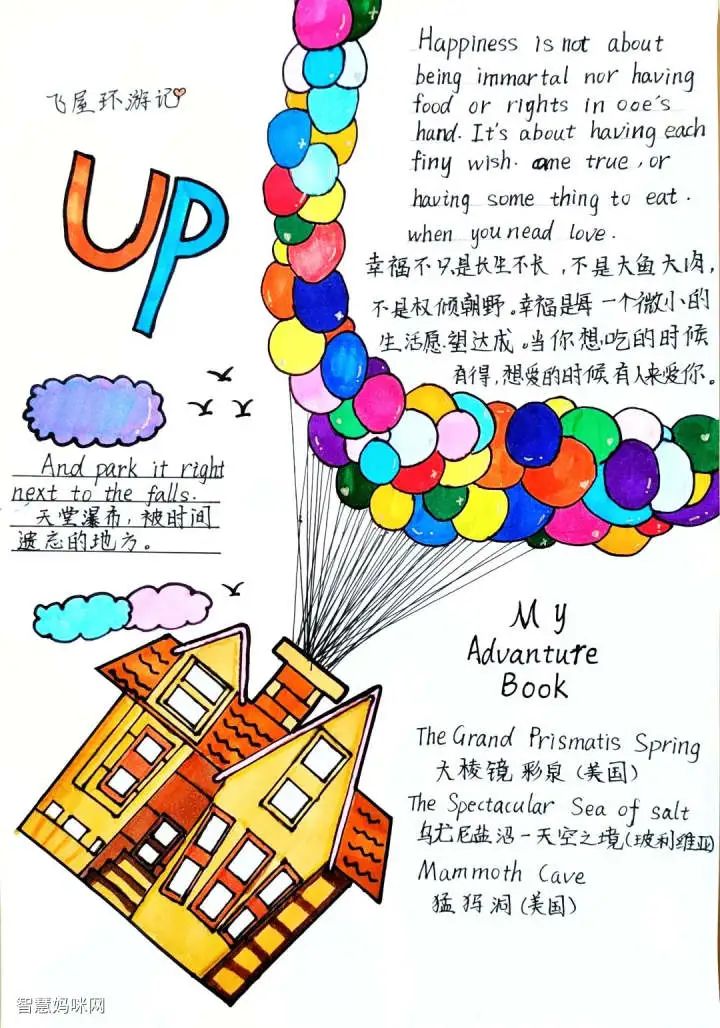 飞屋环游记
UP
Happiness is not about
being immartal nor having
food or rights in ooe's
hand. It's about having each
finy wish. ome true, or
having some thing to eat.
when you nead love.
幸福不只是长生不长,不是大鱼大肉,
不是权倾朝野。幸福是每一个微小的
生活愿望达成。当你想吃的时候
有得,想爱的时候有人来爱你。
And park it right
next to the falls.
天堂瀑布,被时间
遗忘的地方。
My
Advanture
Book
The Grand Prismatis Spring
大棱镜彩泉(美国)
The Spectacular Sea of salt
乌尤尼盐沼-天空之境(玻利维亚)
Mammoth Cave
猛犸洞(美国)
智慧妈咪网